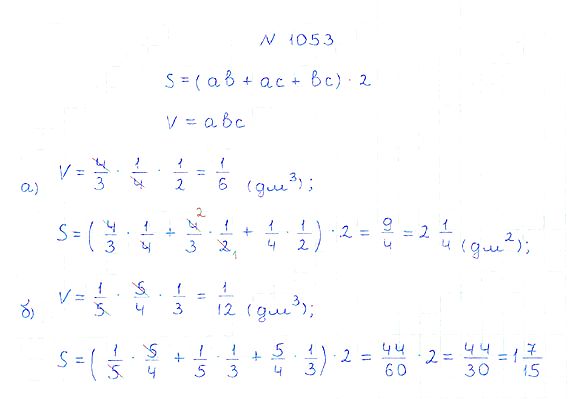 N 1053
S = (ab + ac + bc) · 2
V = abc
а) V = 4/3 · 1/4 · 1/2 = 1/6 (дм³);
S = (4/3 · 1/4 + 4/3 · 1/2 + 1/4 · 1/2) · 2 = 9/4 = 2 1/4 (дм²);
б) V = 1/5 · 5/4 · 1/3 = 1/12 (дм³);
S = (1/5 · 5/4 + 1/5 · 1/3 + 5/4 · 1/3) · 2 = 44/60 · 2 = 44/30 = 1 7/15